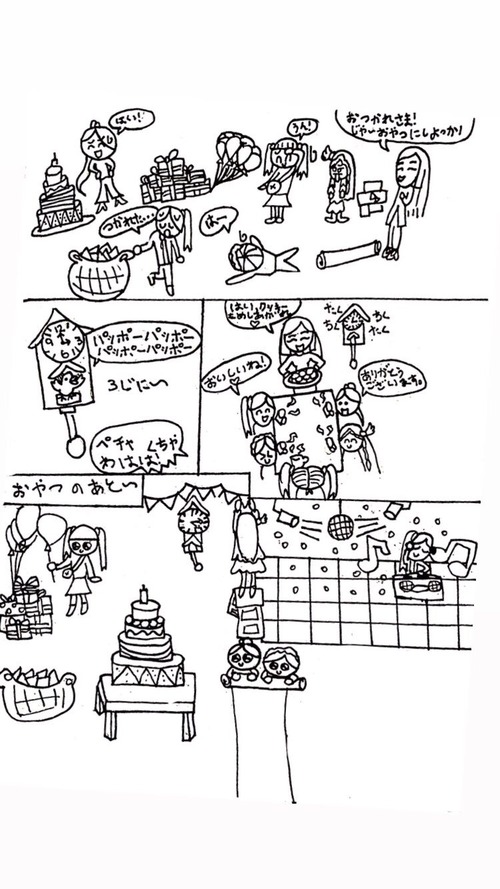 おつかれさま!
じゃーおやつにしよっか!
うん!
はい!
つかれた…
はー
パッポーパッポー
パッポーパッポー
3じにい
ペチャ くちゃ
わはは!
はい、クッキー
ちく
たく
たく
おいしいね!
ありがとう
ございます。
おやつのあとい